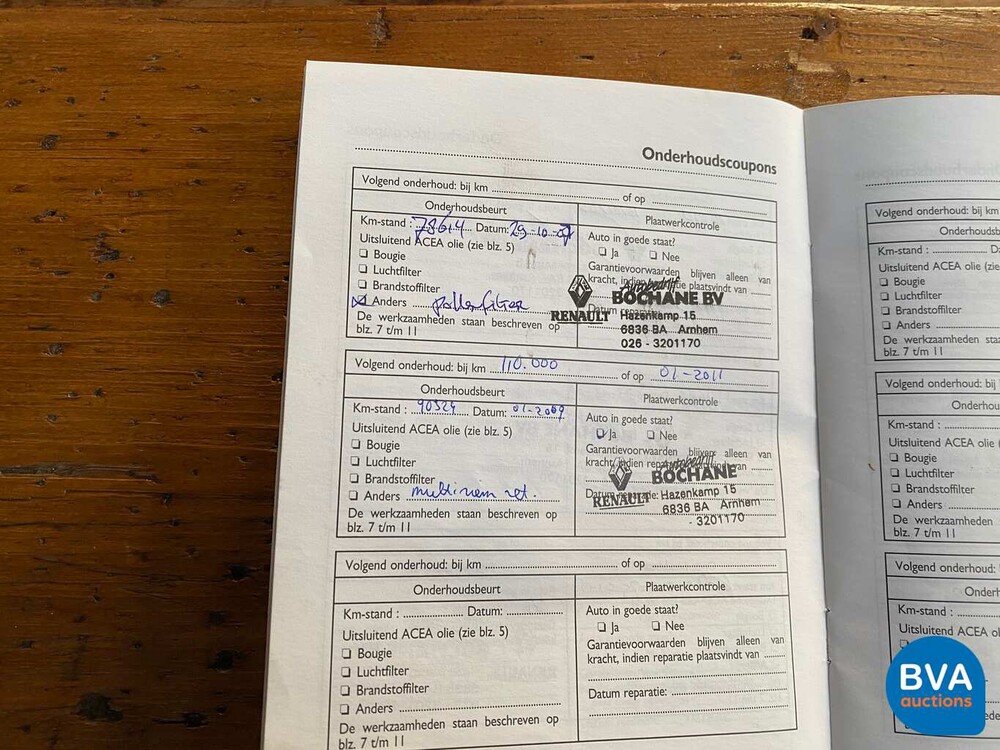 Onderhoudscoupons
Volgend onderhoud: bij km of op
Onderhoudsbeurt Plaatwerkcontrole
Km-stand : 78614 Datum: 29-10-07 Auto in goede staat?
Uitsluitend ACEA olie (zie blz. 5) Ja Nee
Bougie Garantievoorwaarden blijven alleen van
Luchtfilter kracht, indien reparatie plaatsvindt van
Brandstoffilter
Anders pollenfilter
De werkzaamheden staan beschreven op
blz. 7 t/m 11
Autobedrijf
BOCHANE BV
RENAULT Hazenkamp 15
6836 BA Arnhem
026 - 3201170
Volgend onderhoud: bij km 110.000 of op 01-2011
Onderhoudsbeurt Plaatwerkcontrole
Km-stand : 90324 Datum: 01-2009 Auto in goede staat?
Uitsluitend ACEA olie (zie blz. 5) Ja Nee
Bougie Garantievoorwaarden blijven alleen van
Luchtfilter kracht, indien
Brandstoffilter
Anders multiriem
De werkzaamheden staan beschreven op
blz. 7 t/m 11
Autobedrijf
BOCHANE
RENAULT Hazenkamp 15
6836 BA Arnhem
- 3201170
Volgend onderhoud: bij km of op
Onderhoudsbeurt Plaatwerkcontrole
Km-stand : Datum: Auto in goede staat?
Uitsluitend ACEA olie (zie blz. 5) Ja Nee
Bougie Garantievoorwaarden blijven alleen van
Luchtfilter kracht, indien reparatie plaatsvindt van
Brandstoffilter Datum reparatie:
Anders
De werkzaamheden staan beschreven op
blz. 7 t/m 11
Volgend onderhoud: bij km
Km-stand :
Uitsluitend ACEA olie (zie blz. 5)
Bougie
Luchtfilter
Brandstoffilter
Anders
De werkzaamheden staan beschreven
blz. 7 t/m 11
Volgend onderhoud: bij
Km-stand :
Uitsluitend ACEA olie (zie blz.
Bougie
Luchtfilter
Brandstoffilter
Anders
De werkzaamheden
blz. 7 t/m 11
Volgend onderhoud:
Km-stand :
Uitsluitend ACEA
BVA
auctions